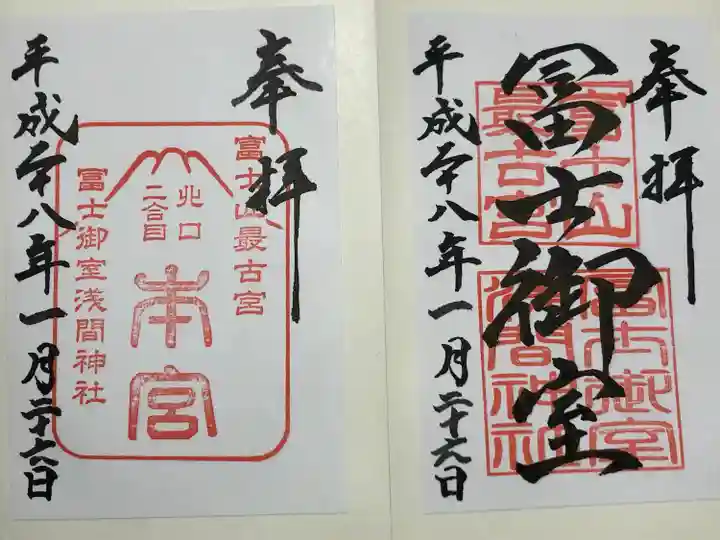 奉拝
富士山最古宮
北口
二合目
本宮
冨士御室浅間神社
平成二十八年一月二十六日
奉拝
冨士山
最古宮
冨士御室
冨士御室
浅間神社
平成二十八年一月二十六日